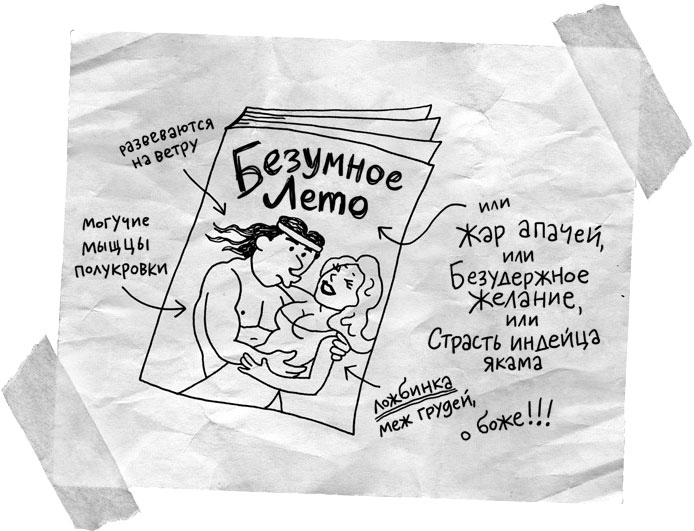 развеваются
на ветру
Безумное
Лето
могучие
мышцы
полукровки
или
Жар апачей,
или
Безудержное
желание,
или
Страсть индейца
якама
ложбинка
меж грудей,
о боже!!!